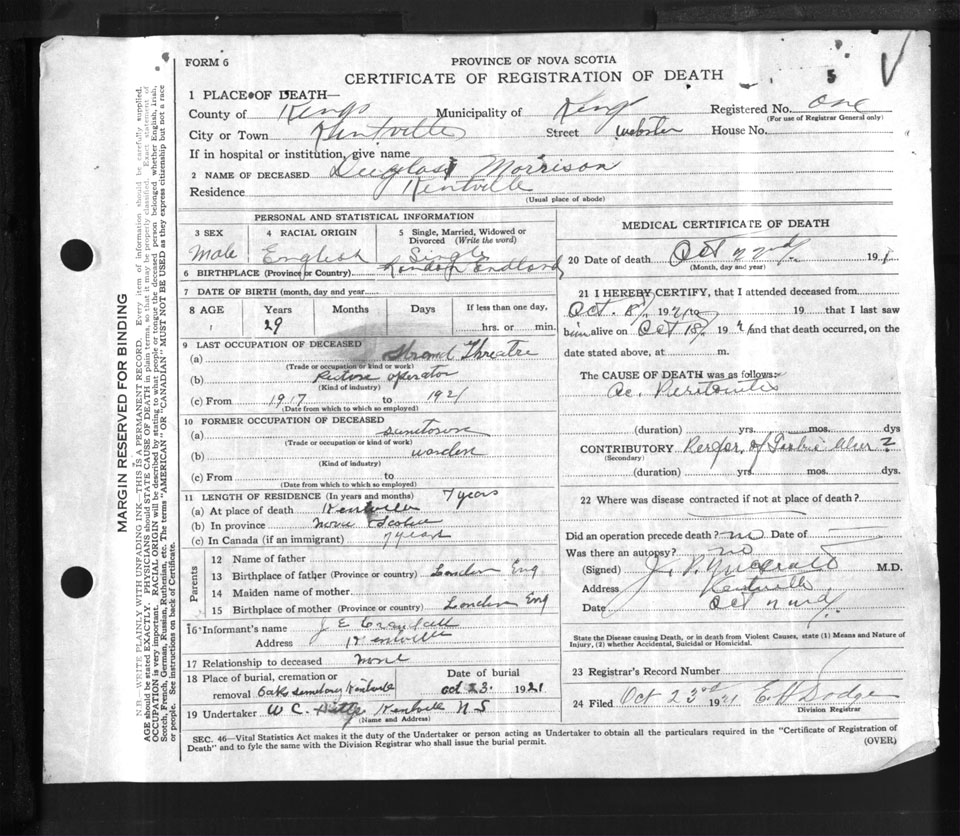 FORM 6
PROVINCE OF NOVA SCOTIA
CERTIFICATE OF REGISTRATION OF DEATH
5
1 PLACE OF DEATH—
County of Kings Municipality of Kings Registered No. one
(For use of Registrar General only)
City or Town Kentville Street Webster House No.
If in hospital or institution, give name
2 NAME OF DECEASED Douglas Morrison
Residence Kentville
(Usual place of abode)
PERSONAL AND STATISTICAL INFORMATION
3 SEX 4 RACIAL ORIGIN 5 Single, Married, Widowed or Divorced (Write the word)
Male English Single
6 BIRTHPLACE (Province or Country) London England
7 DATE OF BIRTH (month, day and year)
8 AGE Years Months Days If less than one day,
29 hrs. or min.
9 LAST OCCUPATION OF DECEASED
(a) Strand Threatre
(Trade or occupation or kind of work)
(b) Picture operator
(Kind of industry)
(c) From 1917 to 1921
(Date from which to which so employed)
10 FORMER OCCUPATION OF DECEASED
(a)
(Trade or occupation or kind of work)
(b) warden
(Kind of industry)
(c) From to
(Date from which to which so employed)
11 LENGTH OF RESIDENCE (In years and months) 7 years
(a) At place of death Kentville
(b) In province Nova Scotia
(c) In Canada (if an immigrant) 7 years
Parents
12 Name of father
13 Birthplace of father (Province or country) London Eng
14 Maiden name of mother
15 Birthplace of mother (Province or country) London Eng
16 Informant's name J E
Address Kentville
17 Relationship to deceased none
18 Place of burial, cremation or removal Oaks Semetery Kentville Date of burial Oct 23. 1921
19 Undertaker W C. Kentville N S
(Name and Address)
MEDICAL CERTIFICATE OF DEATH
20 Date of death Oct 22nd 192 1
(Month, day and year)
21 I HEREBY CERTIFY, that I attended deceased from
Oct. 8th 1921, to 19 that I last saw
him alive on Oct 18th 192 1 and that death occurred, on the
date stated above, at m.
The CAUSE OF DEATH was as follows:
Ac. Peritonitis
(duration) yrs. mos. dys
CONTRIBUTORY Perfor. of Ulcer ?
(Secondary)
(duration) yrs mos. dys.
22 Where was disease contracted if not at place of death?
Did an operation precede death? no Date of
Was there an autopsy? no
(Signed) J. P. M.D.
Address Kentville
Date Oct 22nd
State the Disease causing Death, or in death from Violent Causes, state (1) Means and Nature of
Injury, (2) whether Accidental, Suicidal or Homicidal.
23 Registrar's Record Number
24 Filed Oct 23rd 1921 E H Dodge
Division Registrar
SEC. 46—Vital Statistics Act makes it the duty of the Undertaker or person acting as Undertaker to obtain all the particulars required in the "Certificate of Registration of
Death" and to fyle the same with the Division Registrar who shall issue the burial permit.
(OVER)
MARGIN RESERVED FOR BINDING
N.B.—WRITE PLAINLY WITH UNFADING INK—THIS IS A PERMANENT RECORD. Every item of information should be carefully supplied.
AGE should be stated EXACTLY. PHYSICIANS should STATE CAUSE OF DEATH in plain terms, so that it may be properly classified. Exact statement of
OCCUPATION is very important. RACIAL ORIGIN will be described by stating to what people or tongue the deceased person belonged whether English, Irish,
Scotch, French, German, Russian, Ruthenian, etc. The terms "AMERICAN" OR "CANADIAN" MUST NOT BE USED as they express citizenship but not a race
or people. See instructions on back of Certificate.